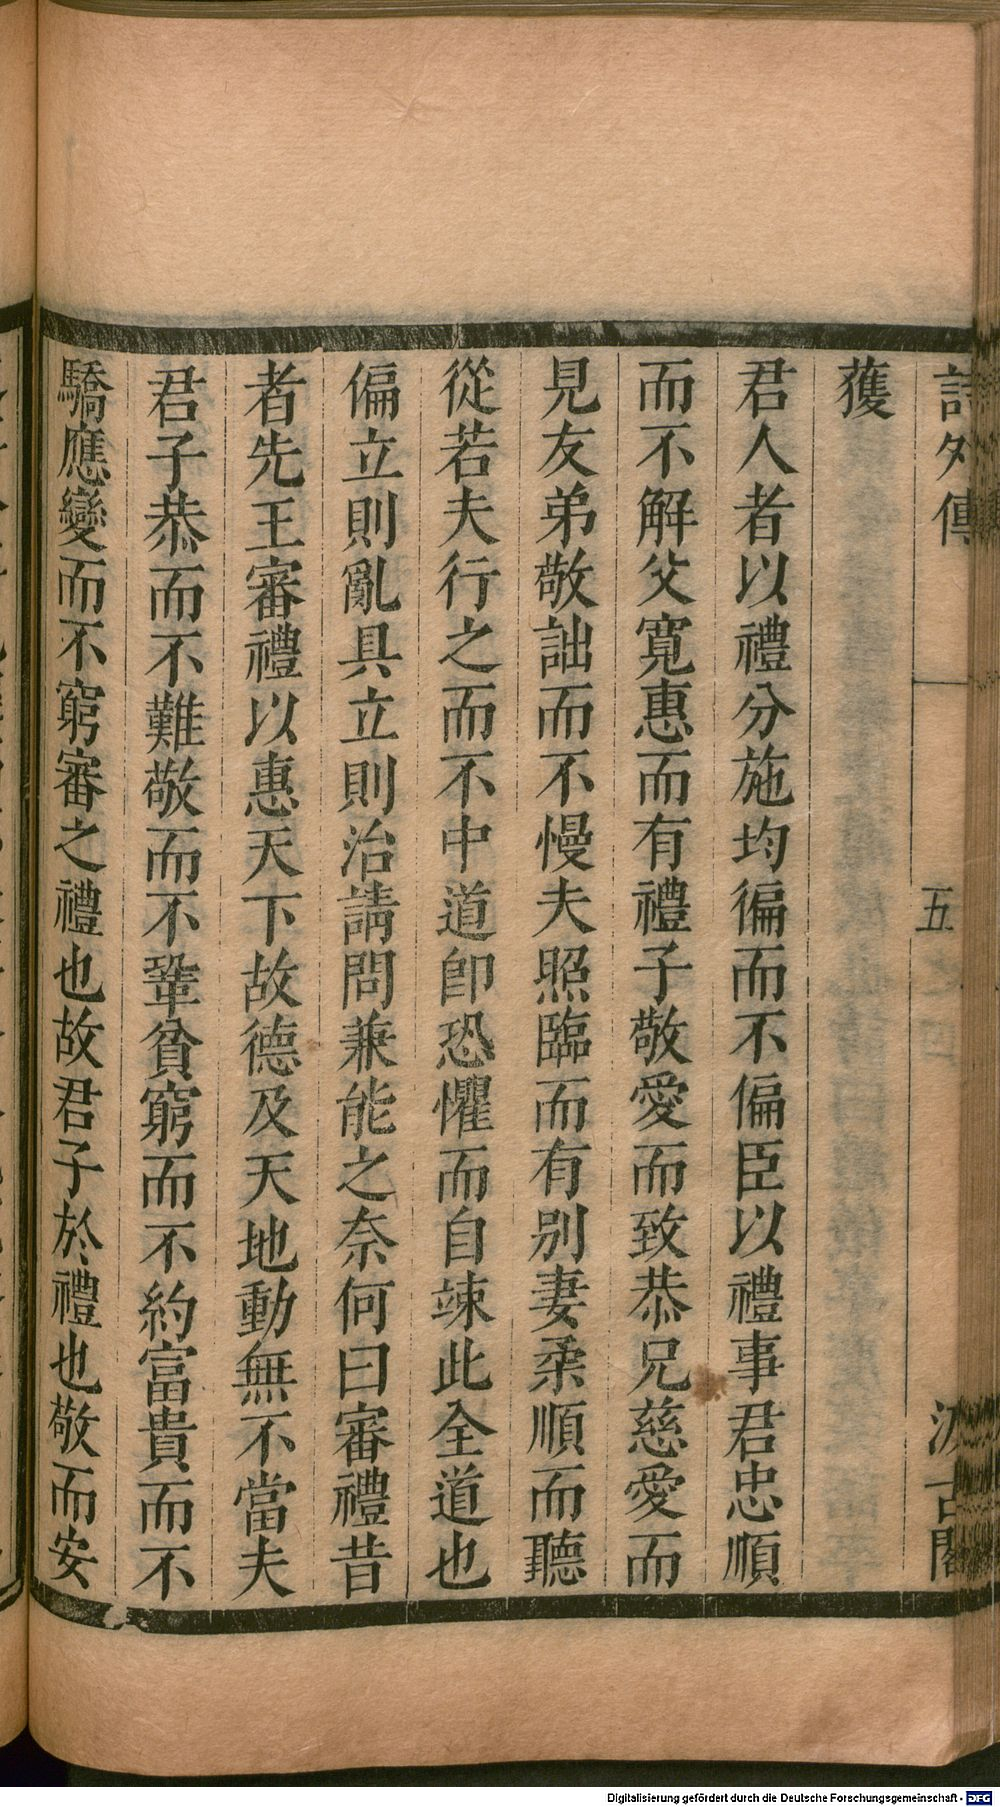 詩外傳 五 汲古閣
獲
君人者以禮分施均徧而不偏臣以禮事君忠順
而不解父寬惠而有禮子敬愛而致恭兄慈愛而
見友弟敬詘而不慢夫照臨而有别妻柔順而聽
從若夫行之而不中道卽恐懼而自竦此全道也
偏立則亂具立則治請問兼能之奈何曰審禮昔
者先王審禮以惠天下故德及天地動無不當夫
君子恭而不難敬而不鞏貧窮而不約富貴而不
驕應變而不窮審之禮也故君子於禮也敬而安
Digitalisierung gefördert durch die Deutsche Forschungsgemeinschaft - DFG